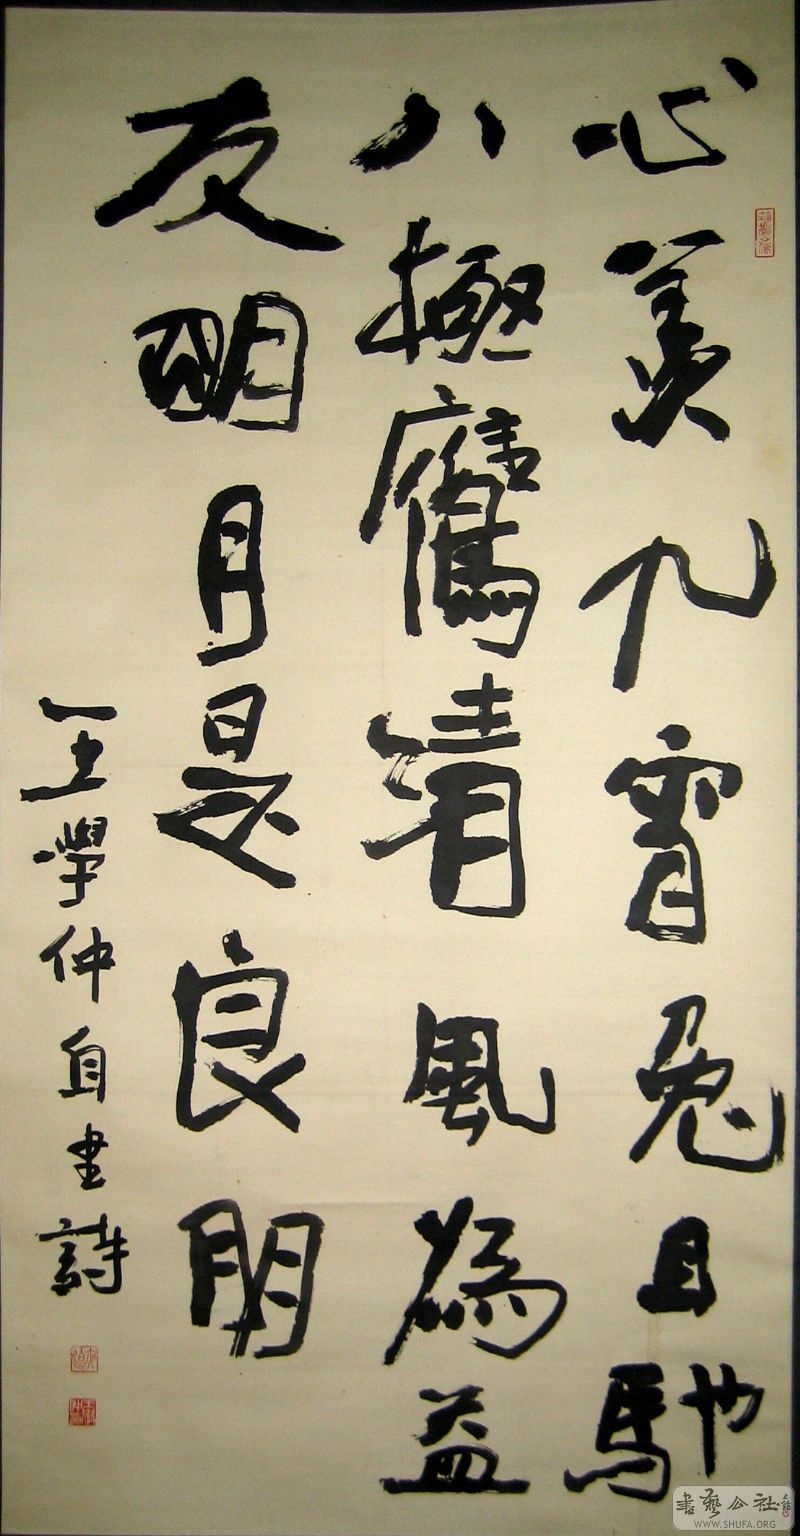 心美九霄兔目馳
八極鷹清風為益
友明月是良朋
王學仲自書詩
書藝公社
WWW.SHUFA.ORG